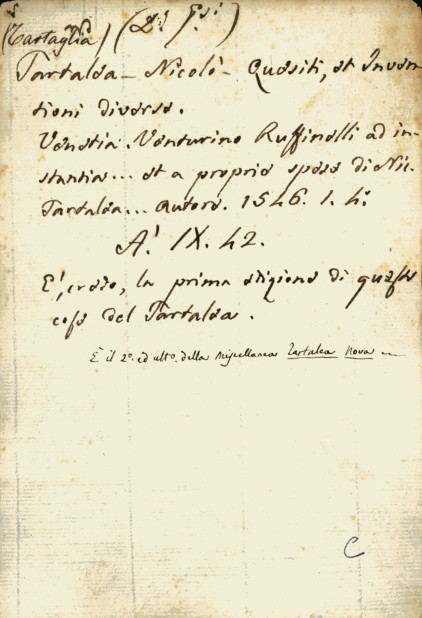 (Tartaglia) (2.ª
Tartalea - Nicolò - Quesiti, et Inven-
tioni diverse.
Venetia. Venturino Ruffinelli ad in-
stantia... et a proprie spese di Nic.
Tartalea... autore. 1546. 1. 4º
A! IX. 42.
E', credo, la prima edizione di queste
cose del Tartalea.
È il 2º. ed ultº. della Miscellanea Tartalea Nova
C